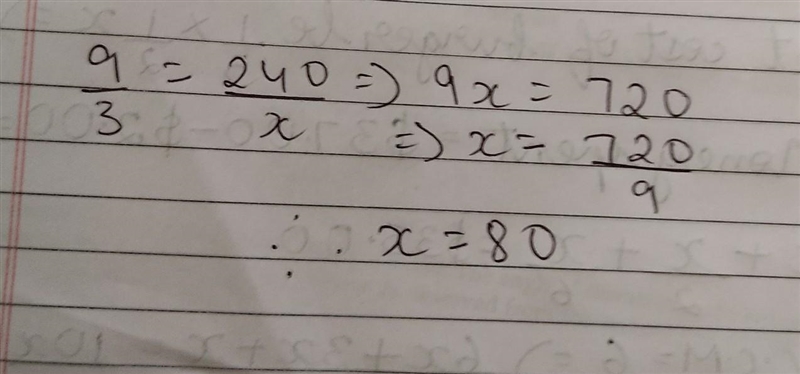 9/3 = 240/x ⇒ 9x = 720
⇒ x = 720/9
∴ x = 80